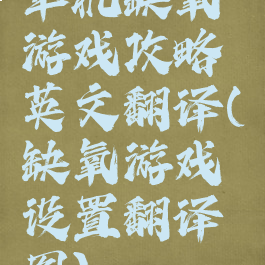 单机缺氧
游戏攻略
英文翻译(
缺氧游戏
设置翻译
图)